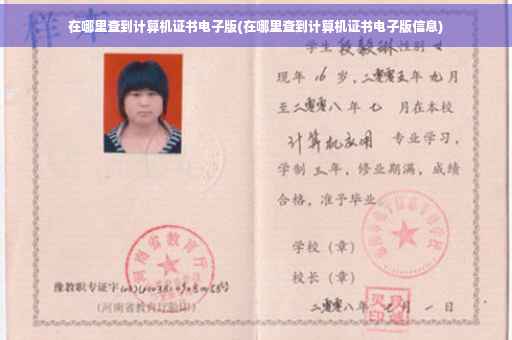 在哪里查到计算机证书电子版(在哪里查到计算机证书电子版信息)
样本
学生 段毅琳 性别 女
现年 16 岁，二零零五年 九月
至二零零八年 七 月在本校
计算机应用 专业学习，
学制 三年，修业期满，成绩
合格，准予毕业
学校（章）
校长（章）
二零零八年 七 月 一 日
河南省教育厅
豫教职专证字
(河南省教育厅验印)